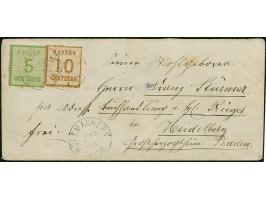 POSTES POSTES
5 10
CENTIMES CENTIMES
Seiner Wohlgeboren
Herrn Franz Stürmer
per Adresse Buchhandlung v. H. Rieger
frei. in Heidelberg
Großherzogthum Baden.